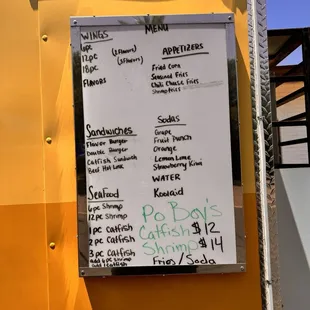 MENU
WINGS
6pc
12pc (2 Flavors)
18pc (3 Flavors)
FLAVORS
APPETIZERS
Fried Corn
Seasoned Fries
Chili Cheese Fries
Shrimp Fries
Sandwiches
Flavor Burger
Double Burger
Catfish Sandwich
Beef Hot Link
Sodas
Grape
Fruit Punch
Orange
Lemon Lime
Strawberry Kiwi
WATER
Koolaid
Seafood
6pc Shrimp
12pc Shrimp
1 pc Catfish
2 pc Catfish
3 pc Catfish
add 6pc shrimp
add 1 catfish
Po Boy's
Catfish $12
Shrimp $14
Fries/Soda